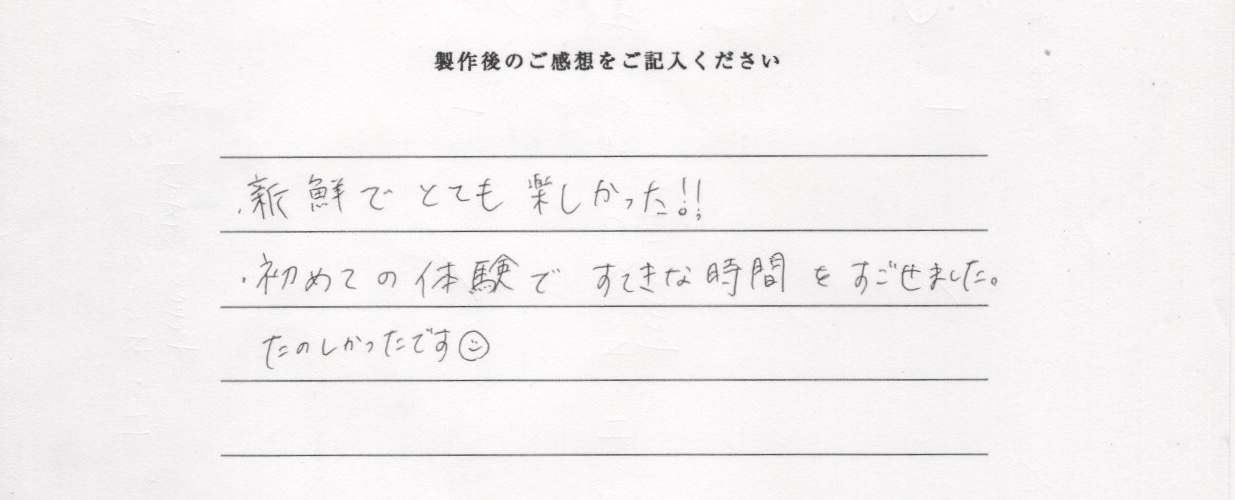 製作後のご感想をご記入ください
・新鮮でとても楽しかった!!
・初めての体験で すてきな時間をすごせました。
たのしかったです☺